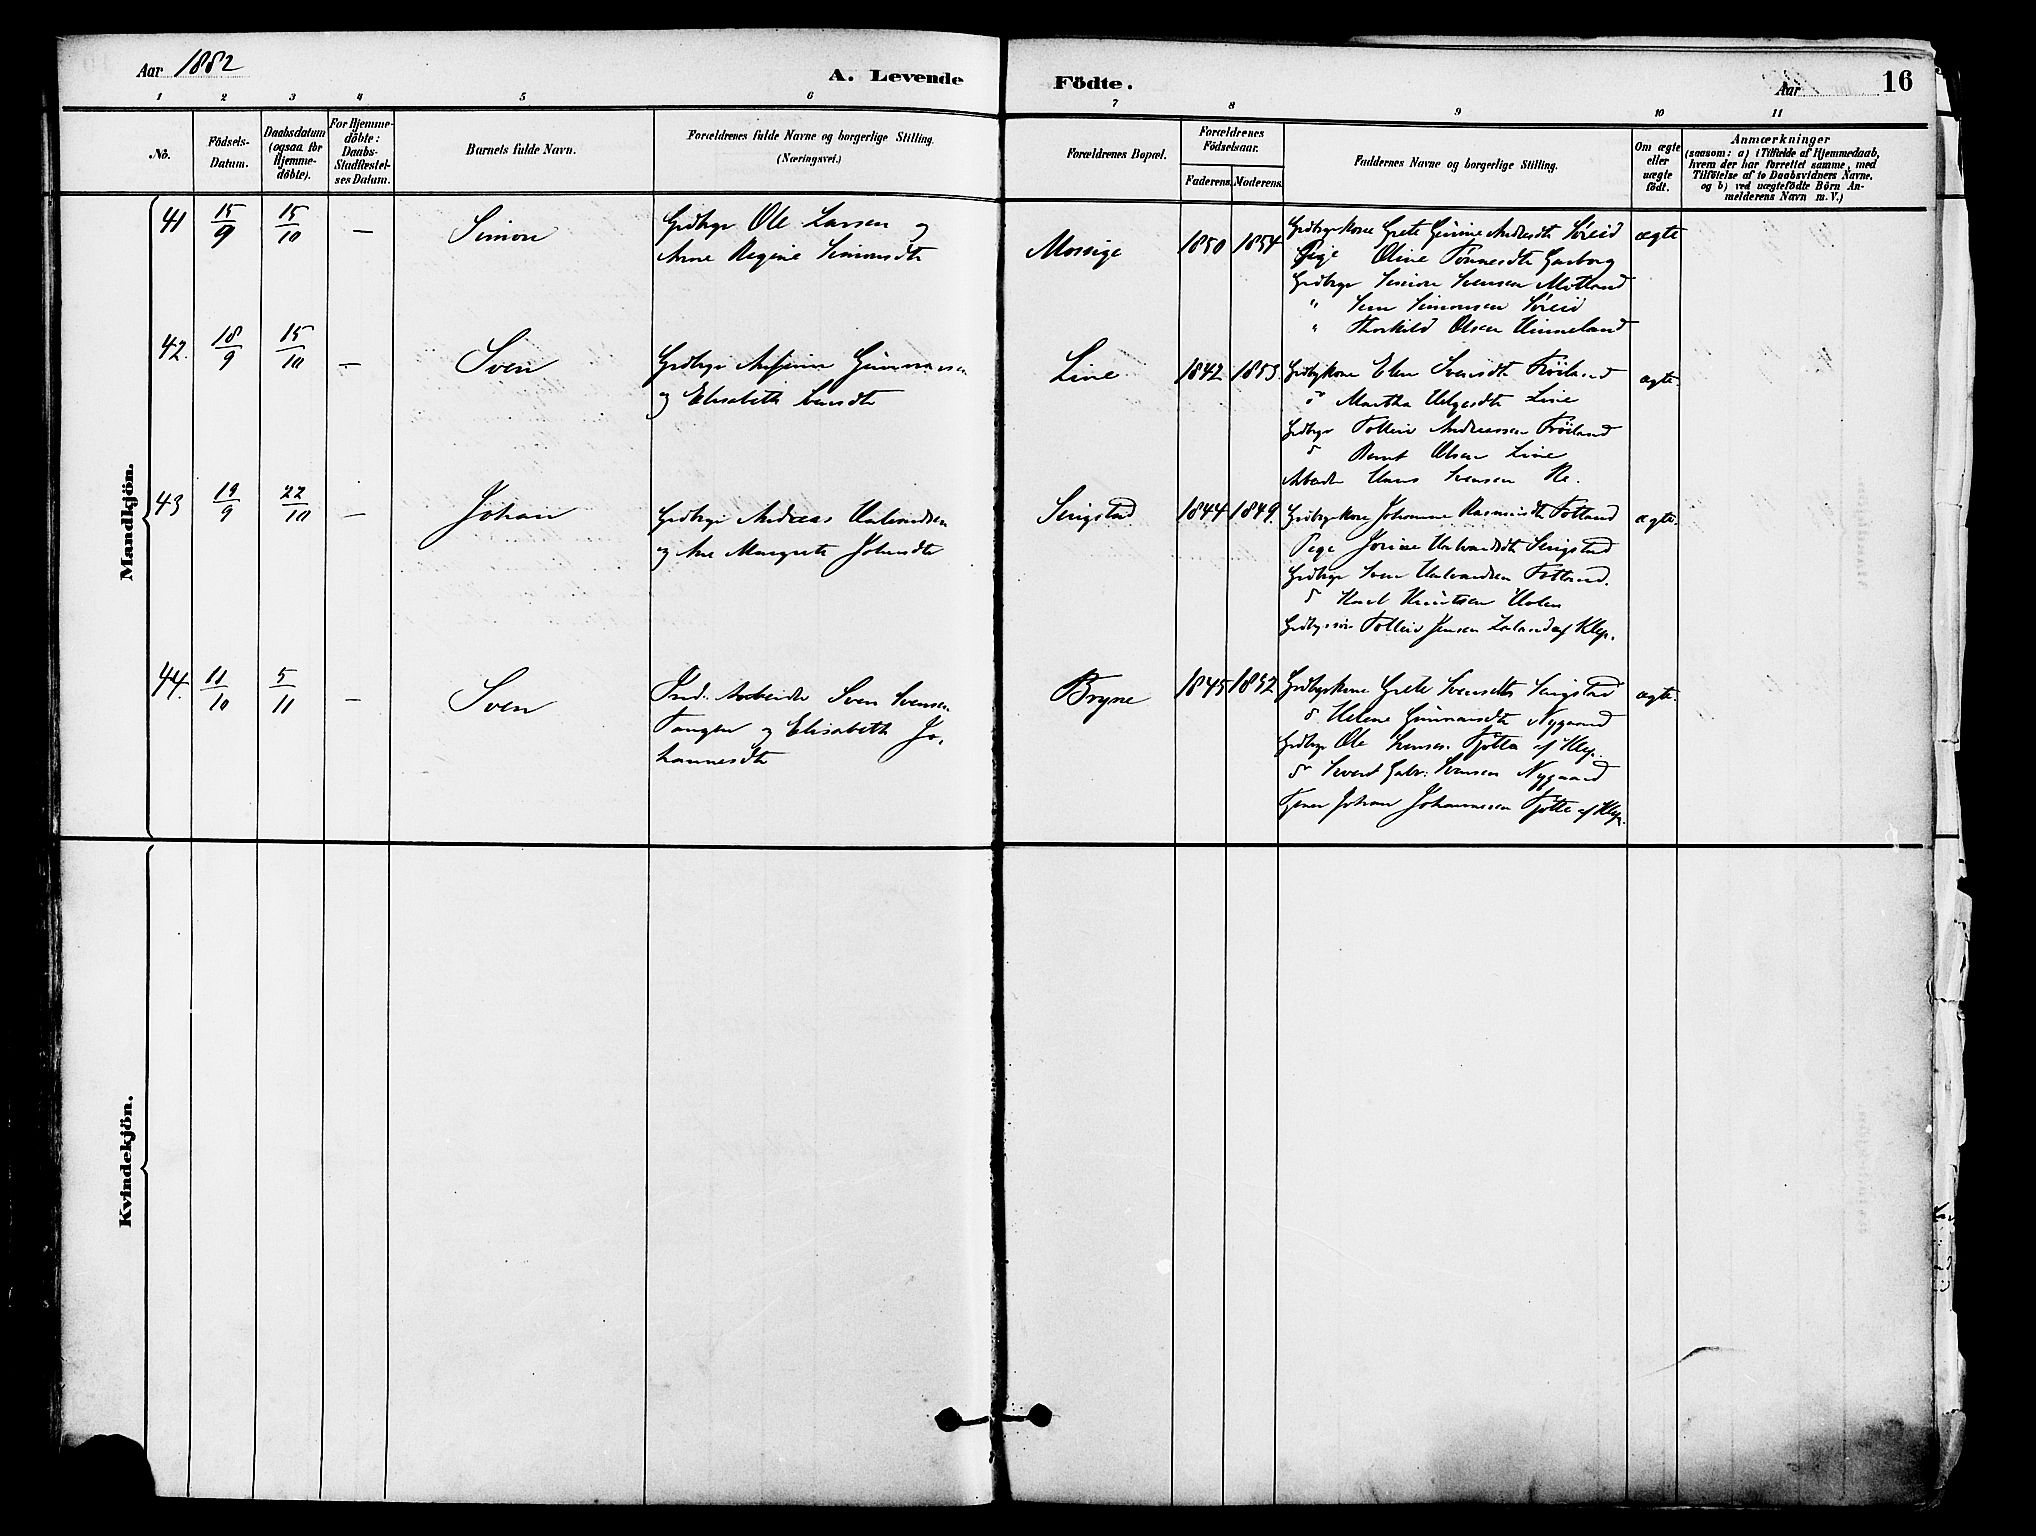 Aar 1882
A. Levende Födte.
Aar 16
1 2 3 4 5 6 7 8 9 10 11
No.
Födsels-Datum.
Daabsdatum (ogsaa for Hjemme-döbte).
For Hjemme-döbte: Daabs-Stadfæstel-ses Datum.
Barnets fulde Navn.
Forældrenes fulde Navne og borgerlige Stilling. (Næringsvei.)
Forældrenes Bopæl.
Forældrenes Födselsaar.
Faderens. Moderens.
Faddernes Navne og borgerlige Stilling.
Om ægte eller uægte födt.
Anmærkninger
(saasom: a) i Tilfælde af Hjemmedaab,
hvem der har forrettet samme, med
Tilföielse af to Daabsvidners Navne,
og b) ved uægtefödte Börn An-
melderens Navn m. V.)
Mandkjön.
41 15/9 15/10 — Simon
Grdbgr Ole Larsen og
Anne Regine Simonsdt
Mossige 1850 1854
Grdbgrkone Grete Gurine Andrdt Söreid
Pige Oline Tönnesdt Garborg
Grdbgr Simon Svensen Motland
" Simonsen Söreid
" Thorkild Olsen Hinneland
ægte
42. 18/9 15/10 — Sven
Grdbgr Gunnarsen
og Elisabeth Svendt
Line 1842 1853.
Grdbgkone Elen Svensdt Fröiland
d Martha Helgesdt Line
Grdbgr Tollein Andreassen Fröiland
d Bernt Olsen Line
Arbeidr Hans Svensen Re.
ægte.
43 19/9 22/10 — Johan
Grdbgr Andreas Halvordsen
og Ane Margrete Johnsdt
Serigstad 1844 1849.
Grdbgrkone Johanne Rasmusdt Fotland
Pige Jorine Halvordsdt Serigstad
Grdbgr Sven Halvordsen Fotland.
d Knutsen Holen
Grdbgrsön Tollein Jensen Laland af Klep.
ægte.
44. 11/10 5/11 — Sven
Ind. Arbeider Sven Svensen
Tangen og Elisabeth Jo-
hannesdt
Bryne 1845 1852
Grdbgrkone Grete Svensdtr Serigstad
d Helene Gunnarsdt Nygaard
Grdbgr Ole Svensen Tjötta af Klep.
d Sivert Gabr. Svensen Nygaard
Tjener Johan Johannessen Tjötte af Klep.
ægte.
Kvindekjön.